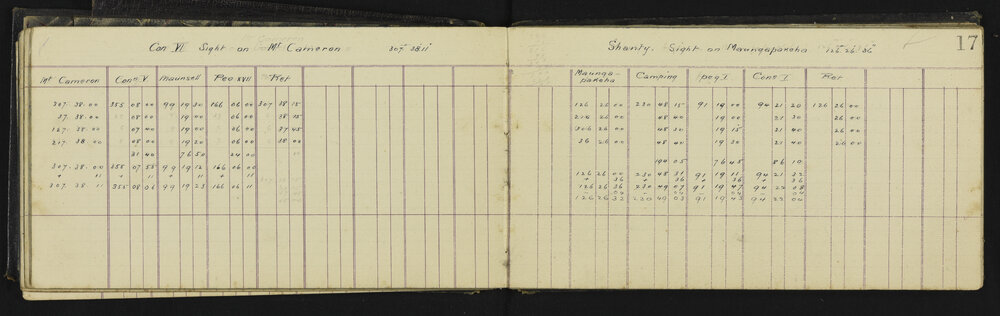 Con VI Sight on Mt Cameron 307 38 11
Mt Cameron Cone V Maunsell Peg XVII Ret
307. 38. 00 355 08 00 99 19 30 166 06 00 307 38 15
37. 38. 00 08 00 19 00 06 00 38 15
127. 38. 00 07 40 19 00 06 00 37 45
217. 38. 00 08 00 19 20 06 00 38 00
31 40 76 50 24 00
307. 38. 00 355 07 55 99 19 12 166 06 00
+ 11 + 11 + 11 + 11
307. 38 11 355 08 06 99 19 23 166 06 11
17
Shanty. Sight on Maungapakeha 126 26 36
Maunga-pakeha Camping peg I Cone I. Ret
126 26 00 230 48 15 91 19 00 94 21 20 126 26 00
216 26 00 48 40 19 00 21 30 26 00
306 26 00 48 30 19 15 21 40 26 00
36 26 00 48 40 19 30 21 40 26 00
194 05 76 45 86 10
126 26 00 230 48 31 91 19 11 94 21 32
+ 36 36 + 36 + 36
126 26 36 230 49 07 91 19 47 94 22 08
- 04 - 04 - 04 - 04
126 26 32 230 49 03 91 19 43 94 22 04